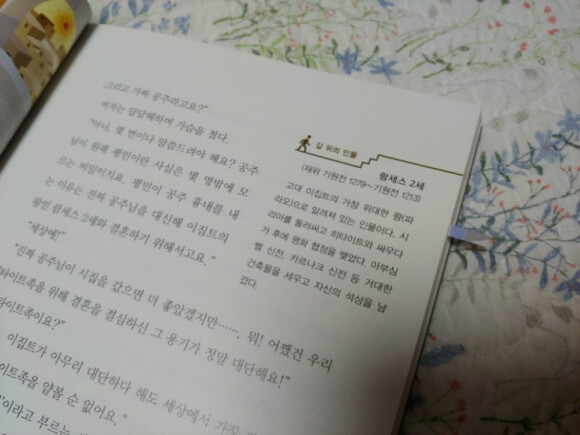 그리고 가짜 공주라고요?"
하자는 답답해하며 가슴을 쳤다.
"아니, 몇 번이나 말씀드려야 해요? 공주
님이 원래 평민이란 사실은 몇 명밖에 모
르는 비밀이지요. 평민이 공주 흉내를 내
는 이유는 진짜 공주님을 대신해 이집트의
왕인 람세스 2세와 결혼하기 위해서고요."
"세상에!"
"진짜 공주님이 시집을 갔으면 더 좋았겠지만……. 뭐! 어쨌건 우리
타이트족을 위해 결혼을 결심하신 그 용기가 정말 대단해요!"
타이트족이요?"
이집트가 아무리 대단하다 해도 세상에서 가장
이트족을 얕볼 순 없어요."
"이라고 부르는
길 위의 인물
람세스 2세
(재위 기원전 1279~기원전 1213)
고대 이집트의 가장 위대한 왕(파
라오)으로 알려져 있는 인물이다. 시
리아를 둘러싸고 히타이트와 싸우다
가 후에 평화 협정을 맺었다. 아부심
벨 신전, 카르나크 신전 등 거대한
건축물을 세우고 자신의 석상을 남
겼다.